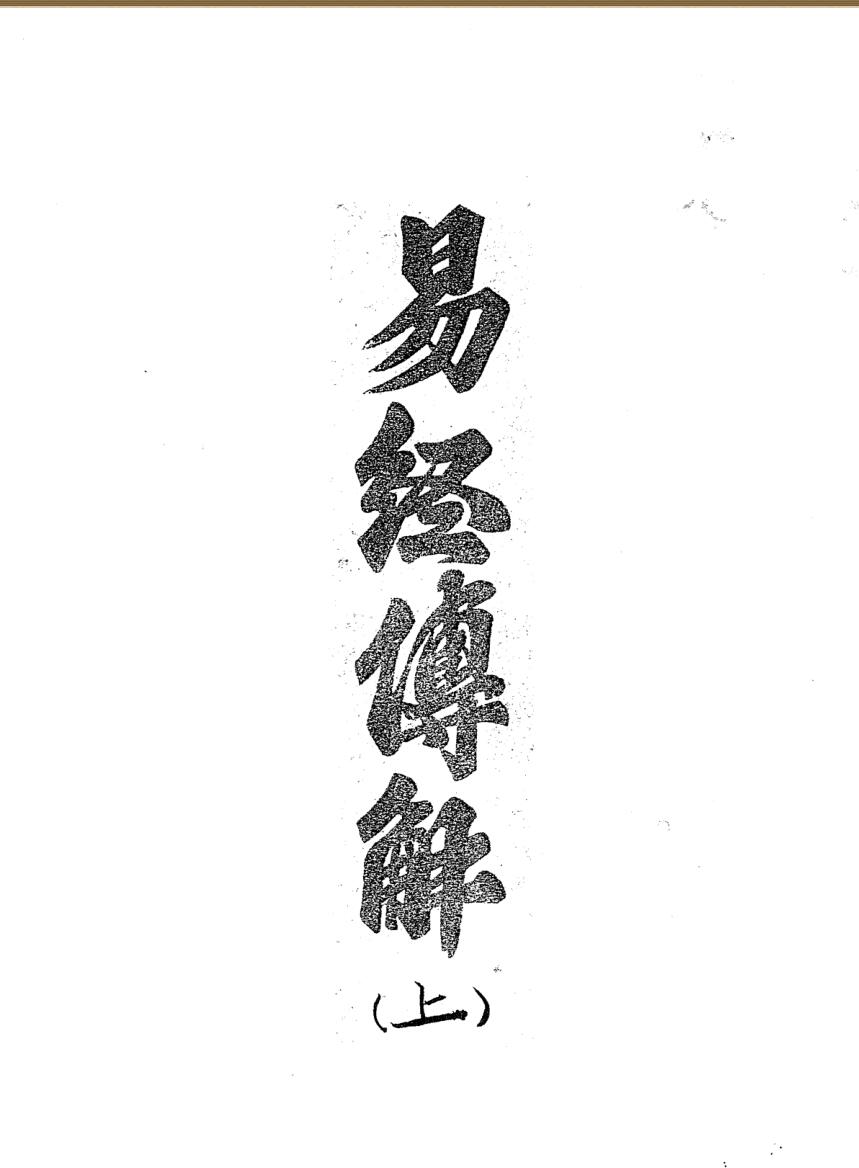 易經傳解
(上)